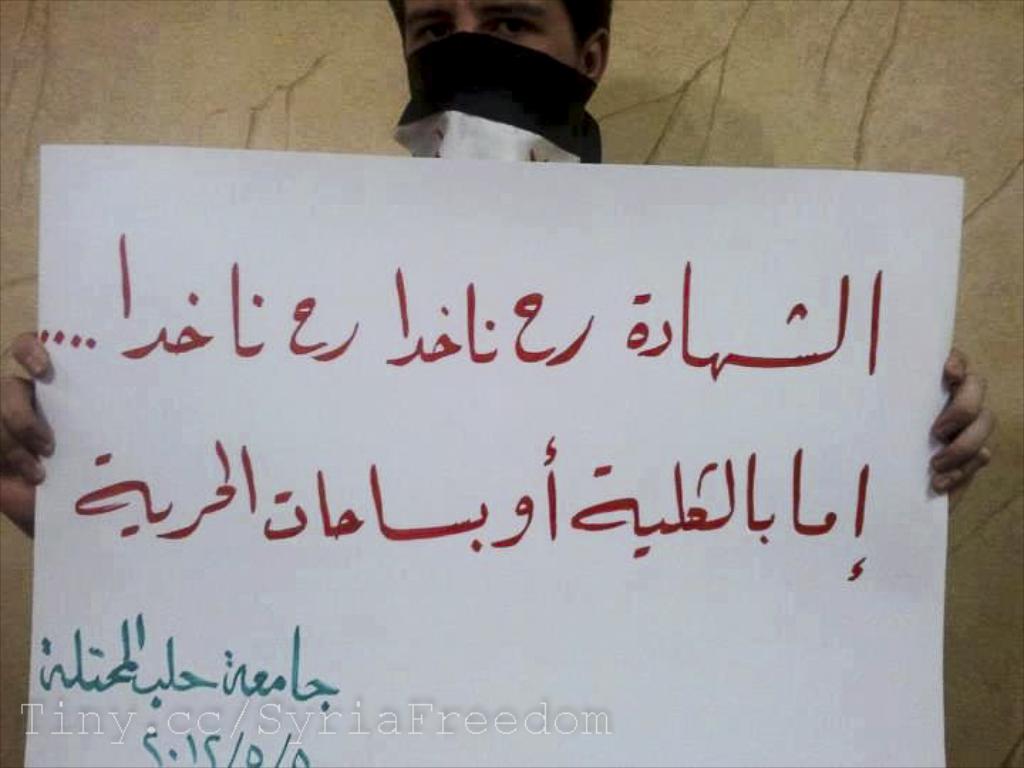 الشهادة رح ناخدا رح ناخدا ....
إما بالكلية أو بساحات الحرية
جامعة حلب المحتلة
٢٠١٢/٥/٥
Tiny.cc/SyriaFreedom